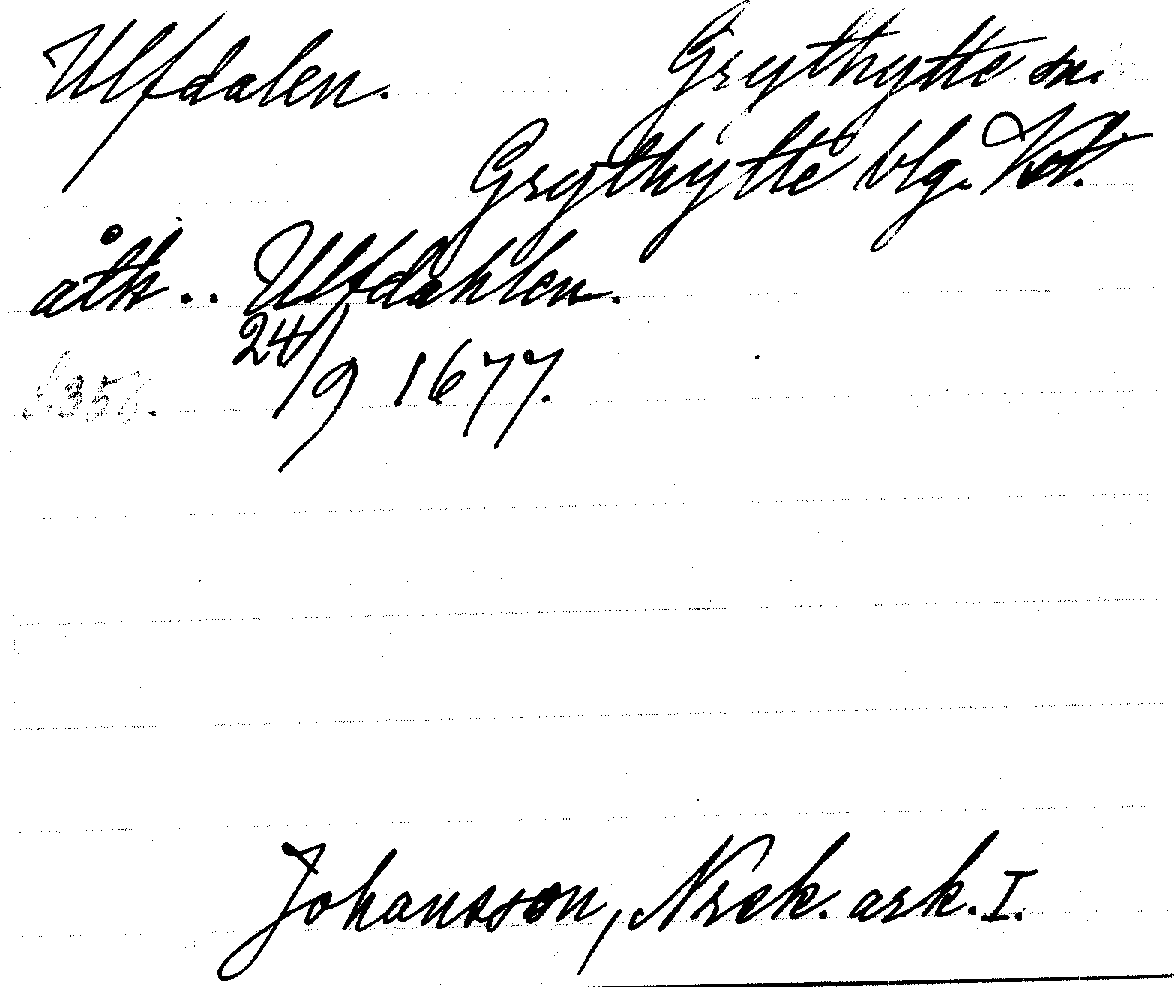 Ulfdalen. Grythytte sn.
Grythytte blg. Vstl.
åtk .. Ulfdahlen.
24/9 1677.
s. 358.
Johansson, Nrek. ark. I.